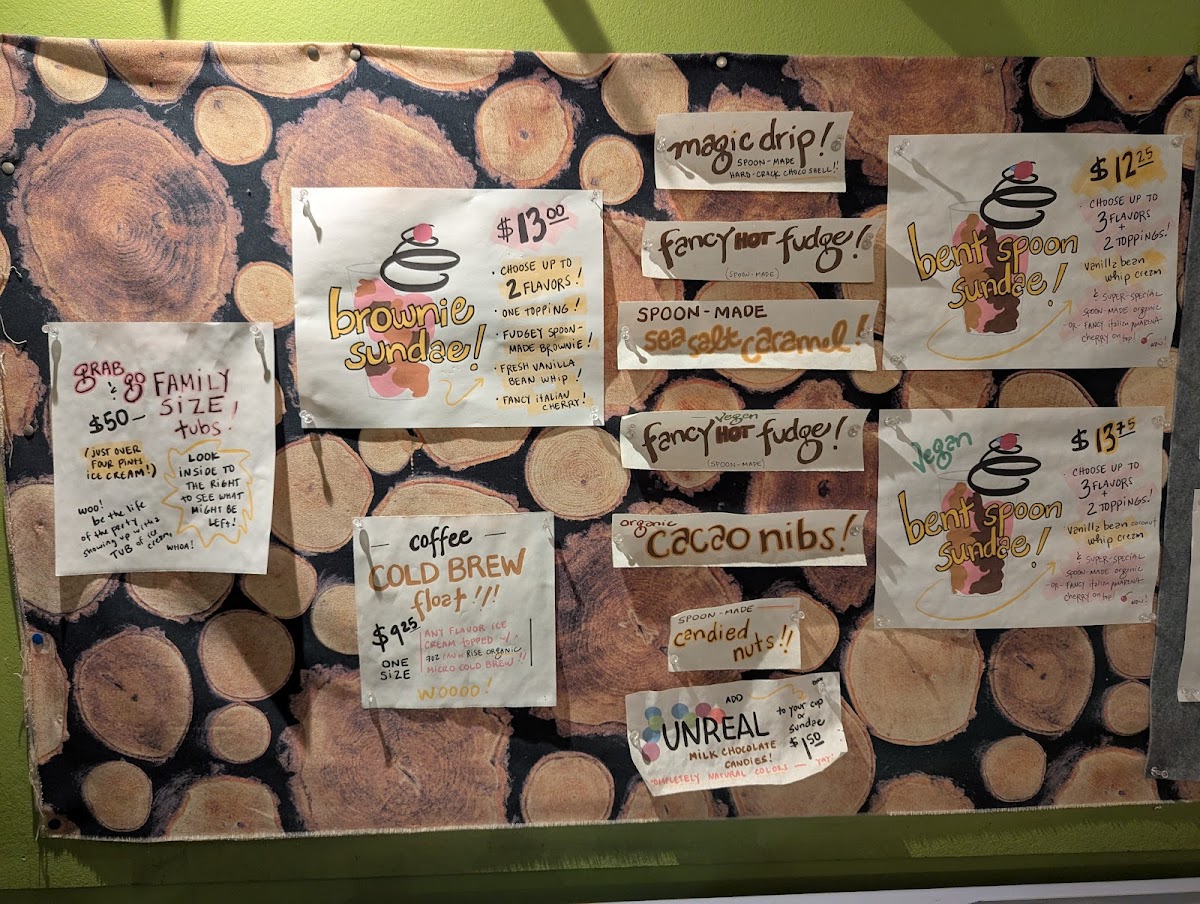 grab & go FAMILY
SIZE
$50— tubs!
(JUST OVER
FOUR PINTS
ICE CREAM!)
LOOK
INSIDE TO
THE RIGHT
TO SEE WHAT
MIGHT BE
LEFT!
WOO!
be the life
of the party
showing up with a
TUB of ice
cream,
WHOA!
$13.00
brownie
sundae!
• CHOOSE UP TO
2 FLAVORS!
• ONE TOPPING!
• FUDGEY SPOON-
MADE BROWNIE!
• FRESH VANILLA
BEAN WHIP!
• FANCY ITALIAN
CHERRY!
— coffee —
COLD BREW
float!!!
$9.25
ONE
SIZE
ANY FLAVOR ICE
CREAM topped
7oz RISE ORGANIC
MICRO COLD BREW!!
WOOOO!
magic drip!
SPOON-MADE
HARD-CRACK CHOCO SHELL!!
fancy HOT fudge!
(SPOON-MADE)
SPOON-MADE
sea salt caramel!
— vegan —
fancy HOT fudge!
(SPOON-MADE)
organic
cacao nibs!
SPOON-MADE
candied
nuts!!
ADD
UNREAL
MILK CHOCOLATE
CANDIES!
to your cup
or
sundae
$1.50
COMPLETELY NATURAL COLORS — YAY!
$12.25
bent spoon
sundae!
• CHOOSE UP TO
3 FLAVORS
+
2 TOPPINGS!
vanilla bean
whip cream
& SUPER-SPECIAL
SPOON-MADE ORGANIC
-OR- FANCY italian AMARENA
CHERRY on top!
WOW!
vegan
$13.75
bent spoon
sundae!
• CHOOSE UP TO
3 FLAVORS
+
2 TOPPINGS!
vanilla bean coconut
whip cream
& SUPER-SPECIAL
SPOON-MADE ORGANIC
-OR- FANCY italian AMARENA
CHERRY on top!
WOW!